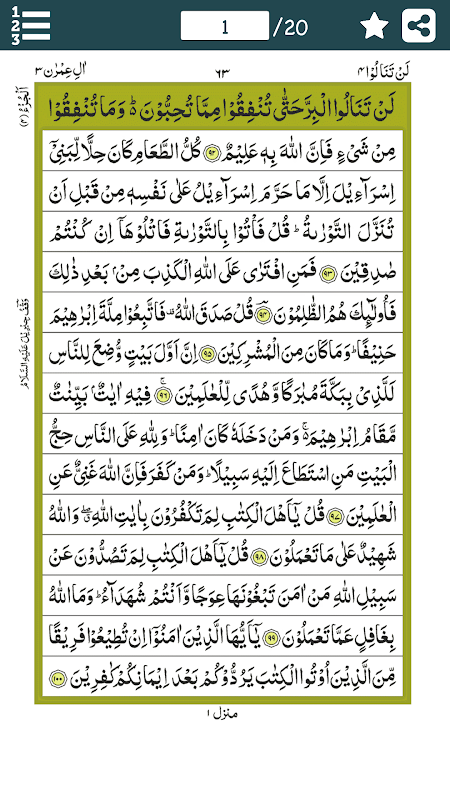 1
2
3
1 /20
لَنْ تَنَالُوْا ۴
۶۳
اٰلِ عِمْرٰن ۳
اَلْجُزْءُ (۴)
لَنْ تَنَالُوا الْبِرَّ حَتّٰى تُنْفِقُوْا مِمَّا تُحِبُّوْنَ ؕ وَمَا تُنْفِقُوْا
مِنْ شَىْءٍ فَاِنَّ اللّٰهَ بِهٖ عَلِيْمٌ ۹۲ كُلُّ الطَّعَامِ كَانَ حِلًّا لِّبَنِىْۤ
اِسْرَآءِيْلَ اِلَّا مَا حَرَّمَ اِسْرَآءِيْلُ عَلٰى نَفْسِهٖ مِنْ قَبْلِ اَنْ
تُنَزَّلَ التَّوْرٰىةُ ؕ قُلْ فَاْتُوْا بِالتَّوْرٰىةِ فَاتْلُوْهَاۤ اِنْ كُنْتُمْ
صٰدِقِيْنَ ۹۳ فَمَنِ افْتَرٰى عَلَى اللّٰهِ الْكَذِبَ مِنْۢ بَعْدِ ذٰلِكَ
فَاُولٰٓئِكَ هُمُ الظّٰلِمُوْنَ ۹۴ قُلْ صَدَقَ اللّٰهُ ۟ فَاتَّبِعُوْا مِلَّةَ اِبْرٰهِيْمَ
حَنِيْفًا ؕ وَمَا كَانَ مِنَ الْمُشْرِكِيْنَ ۹۵ اِنَّ اَوَّلَ بَيْتٍ وُّضِعَ لِلنَّاسِ
لَلَّذِىْ بِبَكَّةَ مُبٰرَكًا وَّهُدًى لِّلْعٰلَمِيْنَ ۚ ۹۶ فِيْهِ اٰيٰتٌۢ بَيِّنٰتٌ
مَّقَامُ اِبْرٰهِيْمَ ۚ۬ وَمَنْ دَخَلَهٗ كَانَ اٰمِنًا ؕ وَلِلّٰهِ عَلَى النَّاسِ حِجُّ
الْبَيْتِ مَنِ اسْتَطَاعَ اِلَيْهِ سَبِيْلًا ؕ وَمَنْ كَفَرَ فَاِنَّ اللّٰهَ غَنِىٌّ عَنِ
الْعٰلَمِيْنَ ۹۷ قُلْ يٰۤاَهْلَ الْكِتٰبِ لِمَ تَكْفُرُوْنَ بِاٰيٰتِ اللّٰهِ ۖۗ وَاللّٰهُ
شَهِيْدٌ عَلٰى مَا تَعْمَلُوْنَ ۹۸ قُلْ يٰۤاَهْلَ الْكِتٰبِ لِمَ تَصُدُّوْنَ عَنْ
سَبِيْلِ اللّٰهِ مَنْ اٰمَنَ تَبْغُوْنَهَا عِوَجًا وَّاَنْتُمْ شُهَدَآءُ ؕ وَمَا اللّٰهُ
بِغَافِلٍ عَمَّا تَعْمَلُوْنَ ۹۹ يٰۤاَيُّهَا الَّذِيْنَ اٰمَنُوْۤا اِنْ تُطِيْعُوْا فَرِيْقًا
مِّنَ الَّذِيْنَ اُوْتُوا الْكِتٰبَ يَرُدُّوْكُمْ بَعْدَ اِيْمَانِكُمْ كٰفِرِيْنَ ۱۰۰
منزل ۱